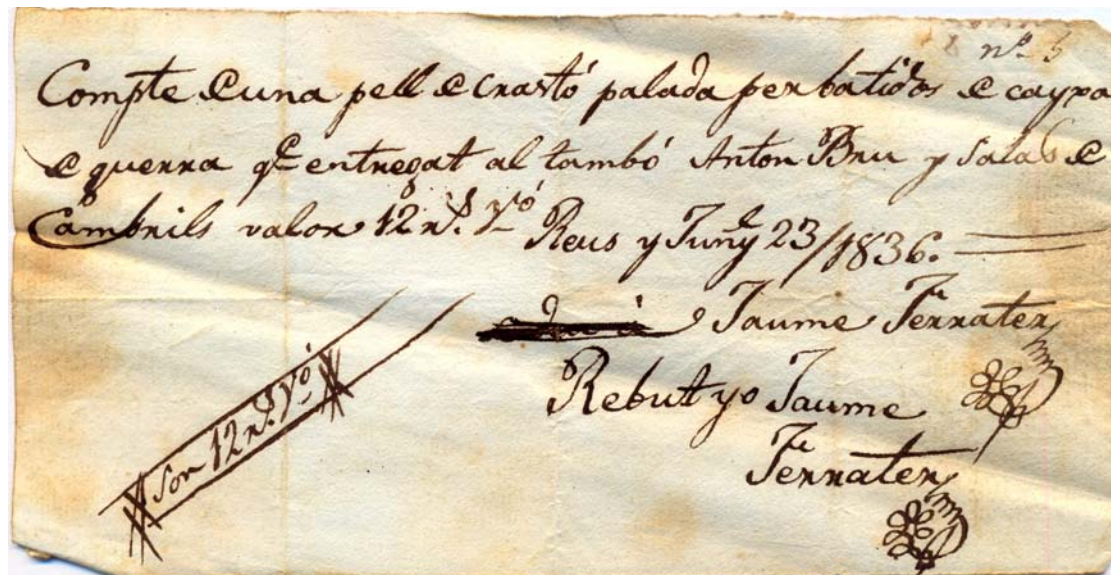 nº 5
Compte de una pell de crastó palada per batidós de cayxa
de guerra qe entregat al tambó Anton Bru y Salas de
Cambrils valor 12 rs. Vó
Reus y Juny 23/1836.
Jaume Ferrater
Rebut yo Jaume
Ferrater
Son 12 rs. Vó